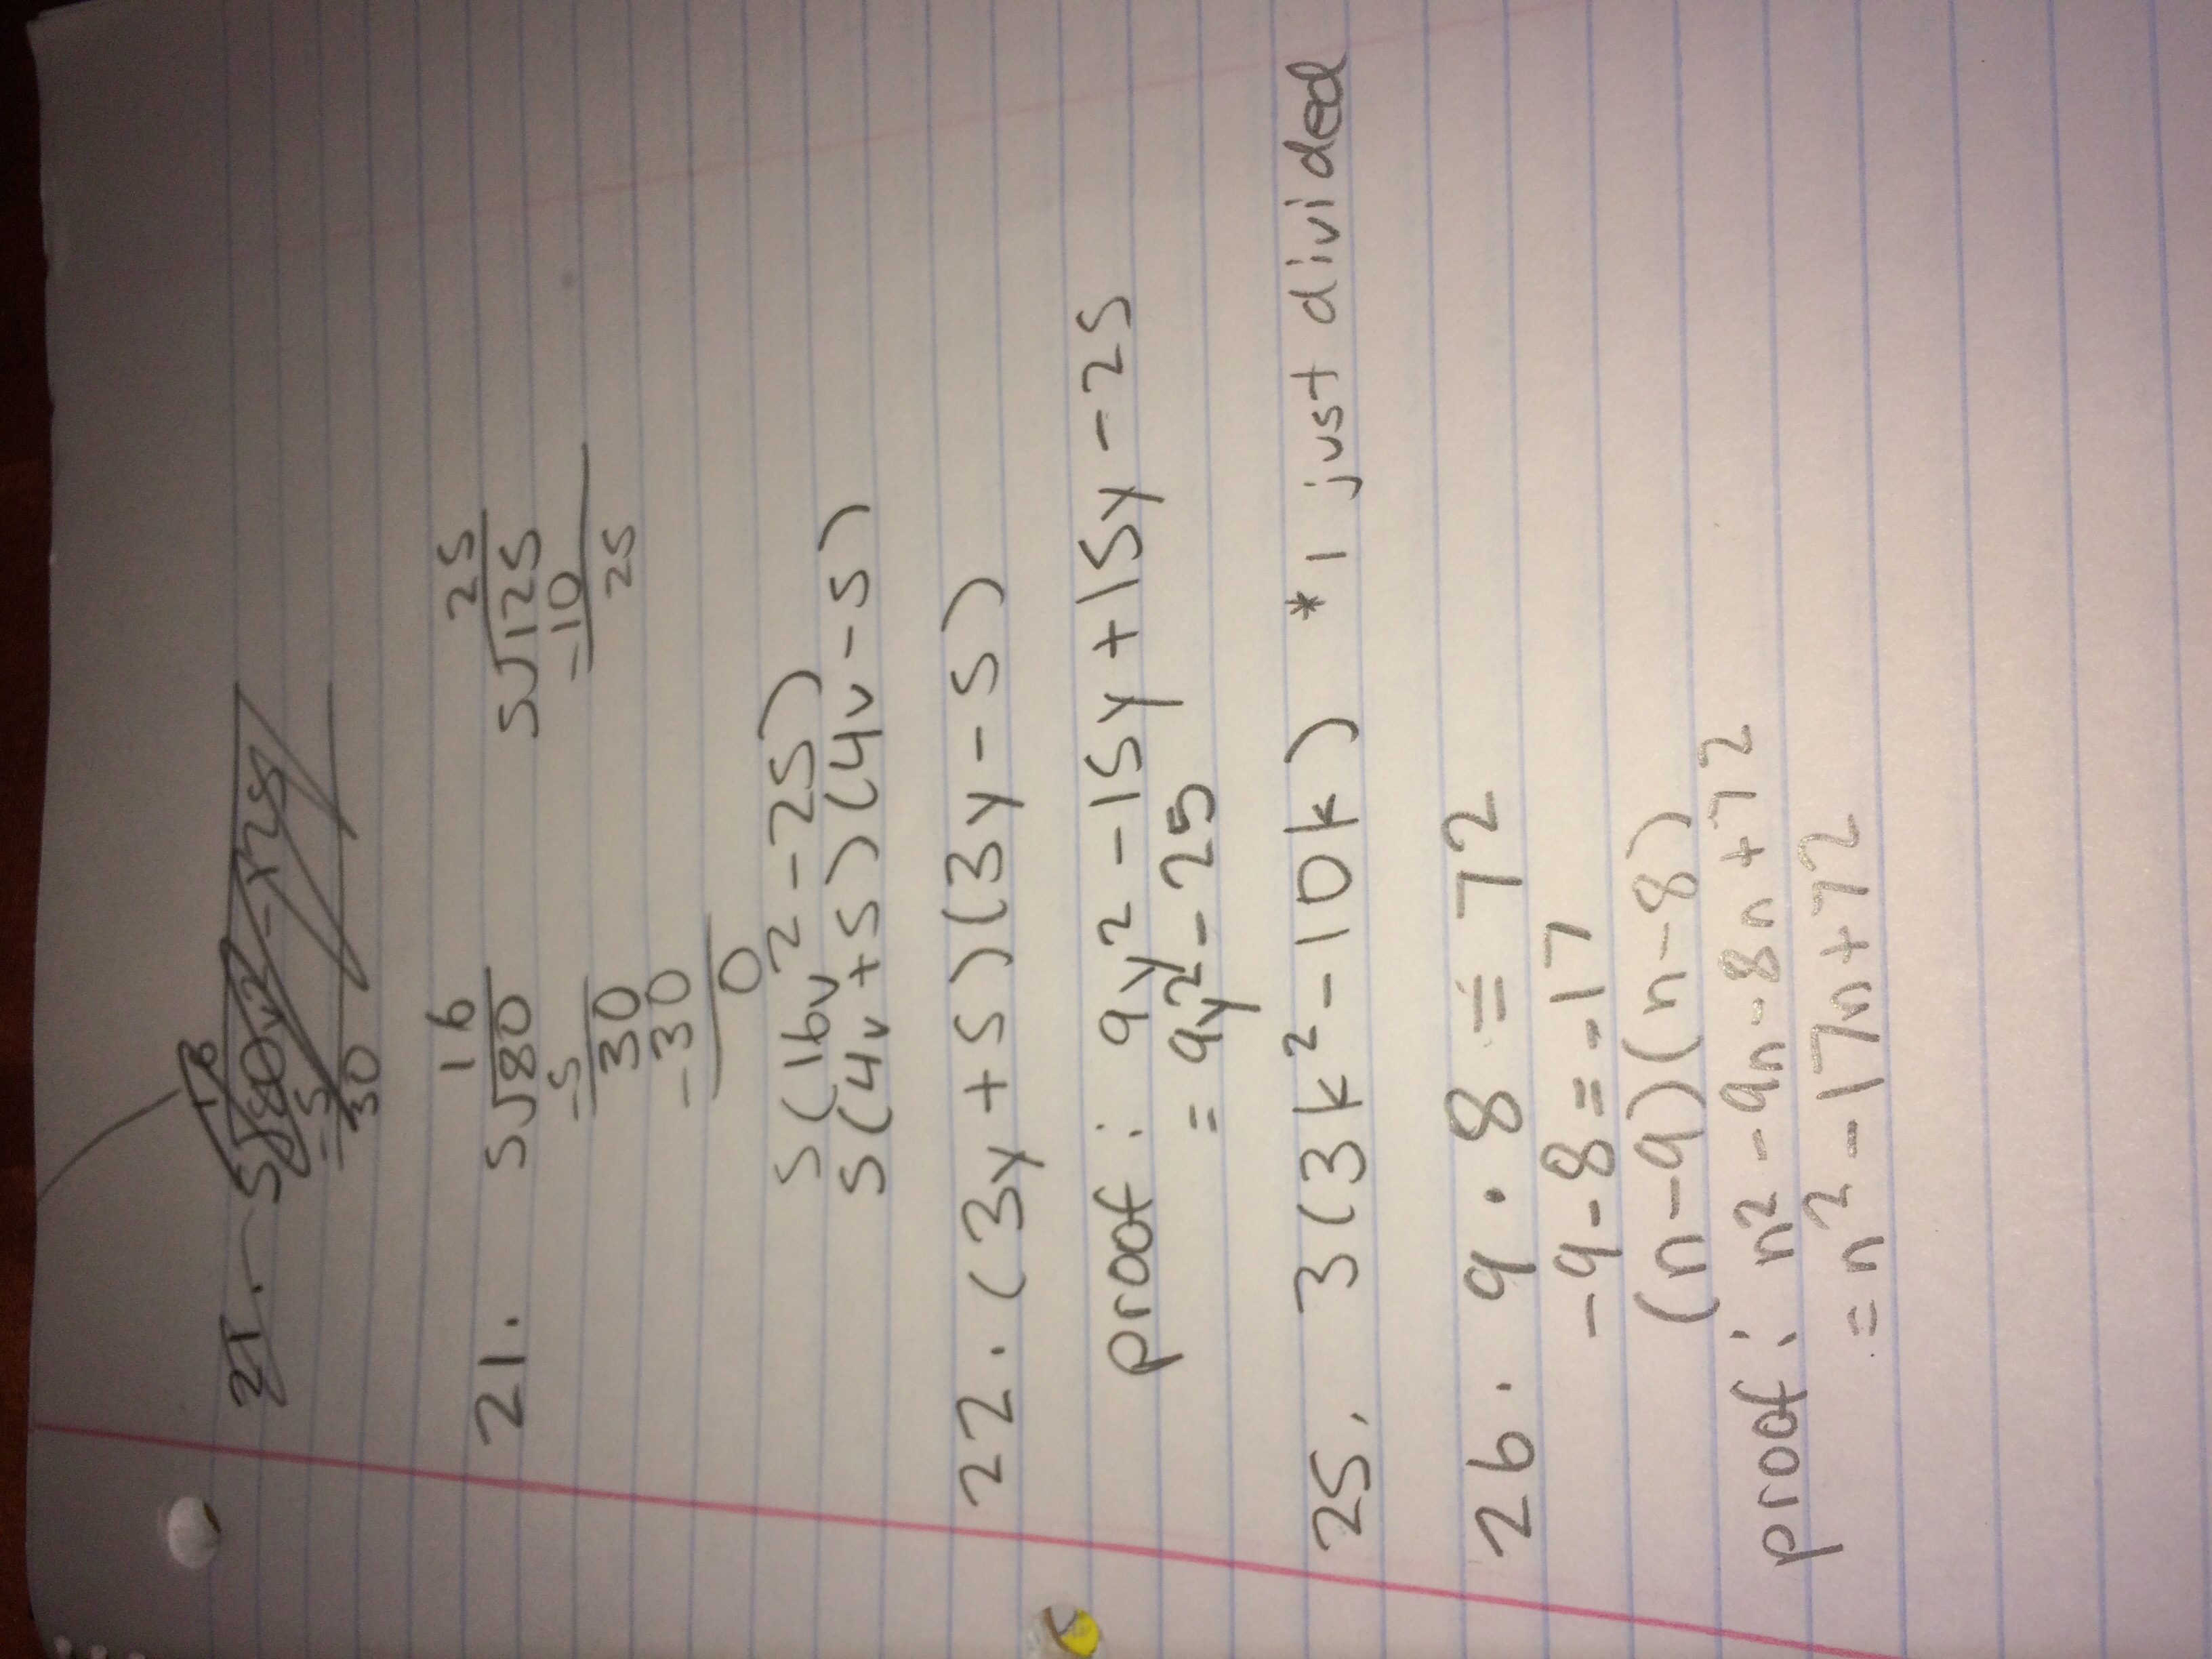 21.
30
21. 5√80 16 5√125 25
-5 -10
30 25
-30
0
5(16v² - 25)
5(4v+5)(4v-5)
22. (3y+5)(3y-5)
proof: 9y² - 15y + 15y - 25
= 9y² - 25
25. 3(3k² - 10k) *I just divided
26. 9 · 8 = 72
-9-8=-17
(n-9)(n-8)
proof: n² - 9n - 8n + 72
= n² - 17n + 72